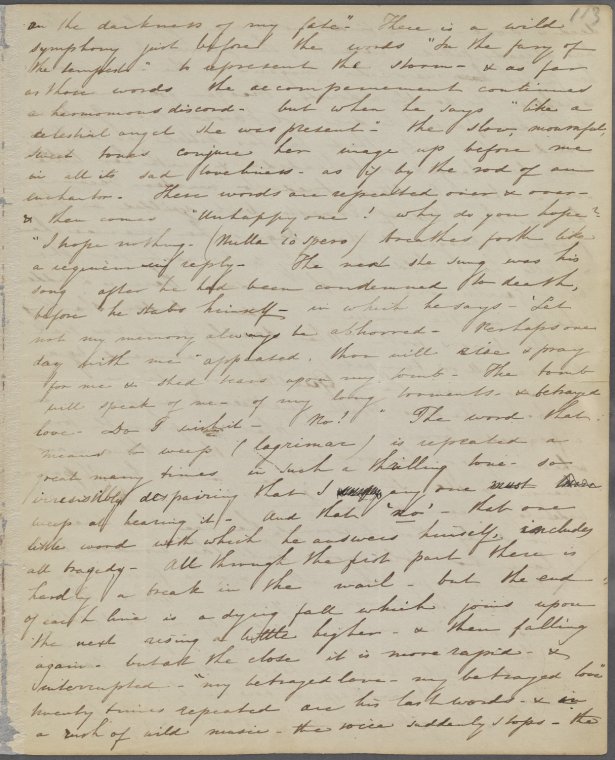 113
in the darkness of my fate" There is a wild
symphony just before the words "In the fury of
the tempest" to represent the storm - & as far
as those words the accompaniment continues
a harmonious discord - but when he says "like a
celestial angel she was present" - the slow, mournful
sweet tones conjure her image up before me
in all its sad loveliness - as if by the rod of an
enchantor. These words are repeated over & over -
& then comes "Unhappy one! why do you hope?"
"I hope nothing. (Nulla io spero) breathes forth like
a requiem reply - The next she sung was his
song after he had been condemned to death,
before he stabs himself - in which he says - "Let
not my memory always be abhorred - Perhaps one
day with me appeated, thou will rise & pray
for me & shed tears upon my tomb - The tomb
will speak of me - of my long torments - & betrayed
love - Do I wish it - No!" The word that
means to weep (lagrimar) is repeated a
great many times in such a thrilling tone - so
irresistibly despairing that I any one must
weep at hearing it - And that 'no' - that one
little word with which he answers himself, includes
all tragedy - All through the first part there is
hardly a break in the wail - but the end
of each line is a dying fall which joins upon
the next rising a little higher - & then falling
again - but at the close it is more rapid - &
interrupted - "my betrayed love - my betrayed love"
twenty times repeated are his last words - & in
a rush of wild music - the voice suddenly stops - the